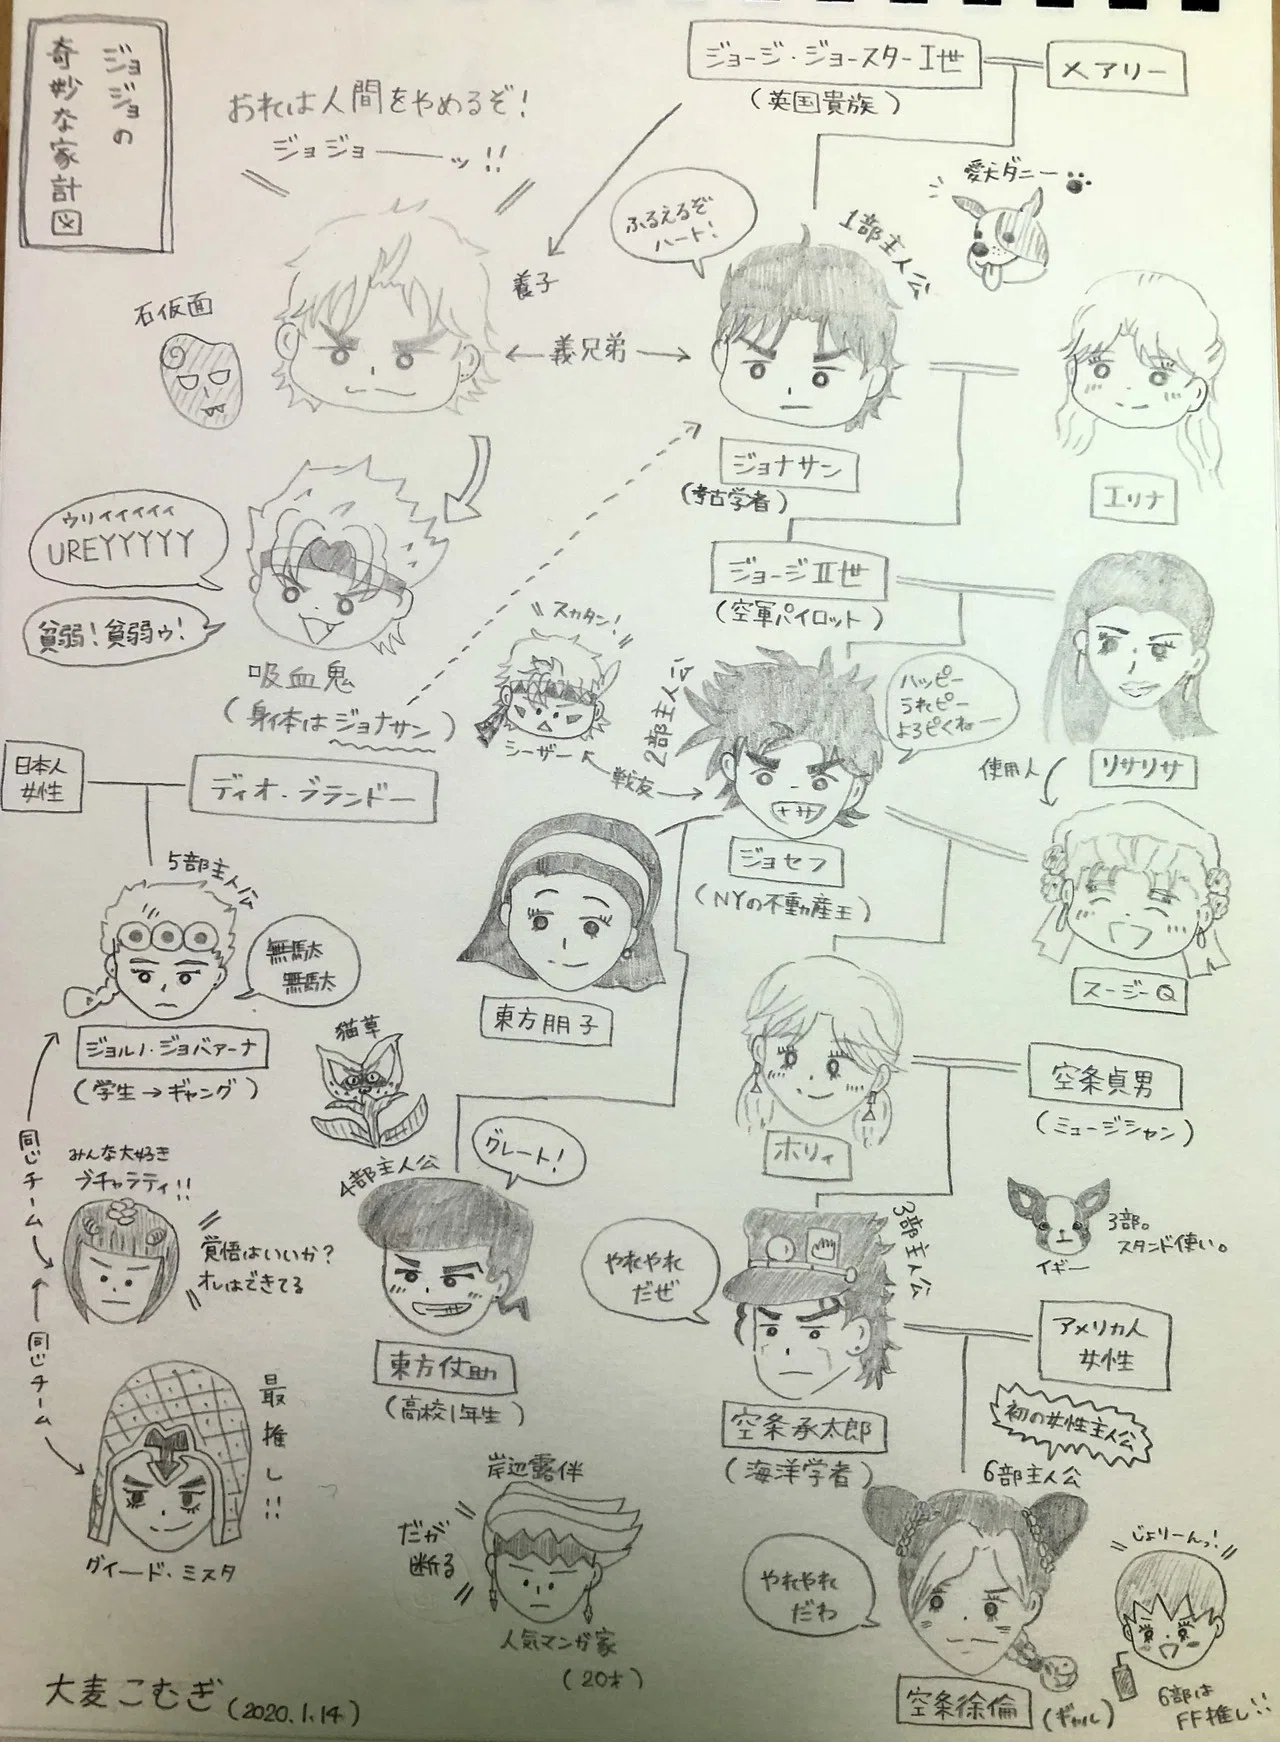 ジョジョの
奇妙な家計図
ジョージ・ジョースターⅠ世
(英国貴族)
メアリー
おれは人間をやめるぞ!
ジョジョ――ッ!!
愛犬ダニー
ふるえるぞ
ハート!
1部主人公
養子
石仮面
義兄弟
ジョナサン
(考古学者)
エリナ
ウリィィィィィ
UREYYYYY
貧弱!貧弱ゥ!
吸血鬼
(身体はジョナサン)
ジョージⅡ世
(空軍パイロット)
スカタン!
シーザー
戦友
2部主人公
ハッピー
うれピー
よろピくねー
リサリサ
使用人
日本人
女性
ディオ・ブランドー
ジョセフ
(NYの不動産王)
スージーQ
5部主人公
無駄
無駄
ジョルノ・ジョバァーナ
(学生→ギャング)
東方朋子
猫草
ホリィ
空条貞男
(ミュージシャン)
同じチーム
みんな大好き
ブチャラティ!!
覚悟はいいか?
オレはできてる
4部主人公
グレート!
東方仗助
(高校1年生)
やれやれ
だぜ
3部主人公
3部。
スタンド使い。
イギー
アメリカ人
女性
空条承太郎
(海洋学者)
初の女性主人公
同じチーム
最推し!!
グイード・ミスタ
岸辺露伴
だが
断る
人気マンガ家
(20才)
6部主人公
やれやれ
だわ
空条徐倫
(ギャル)
じょりーんっ!
6部は
FF推し!!
大麦こむぎ(2020.1.14)